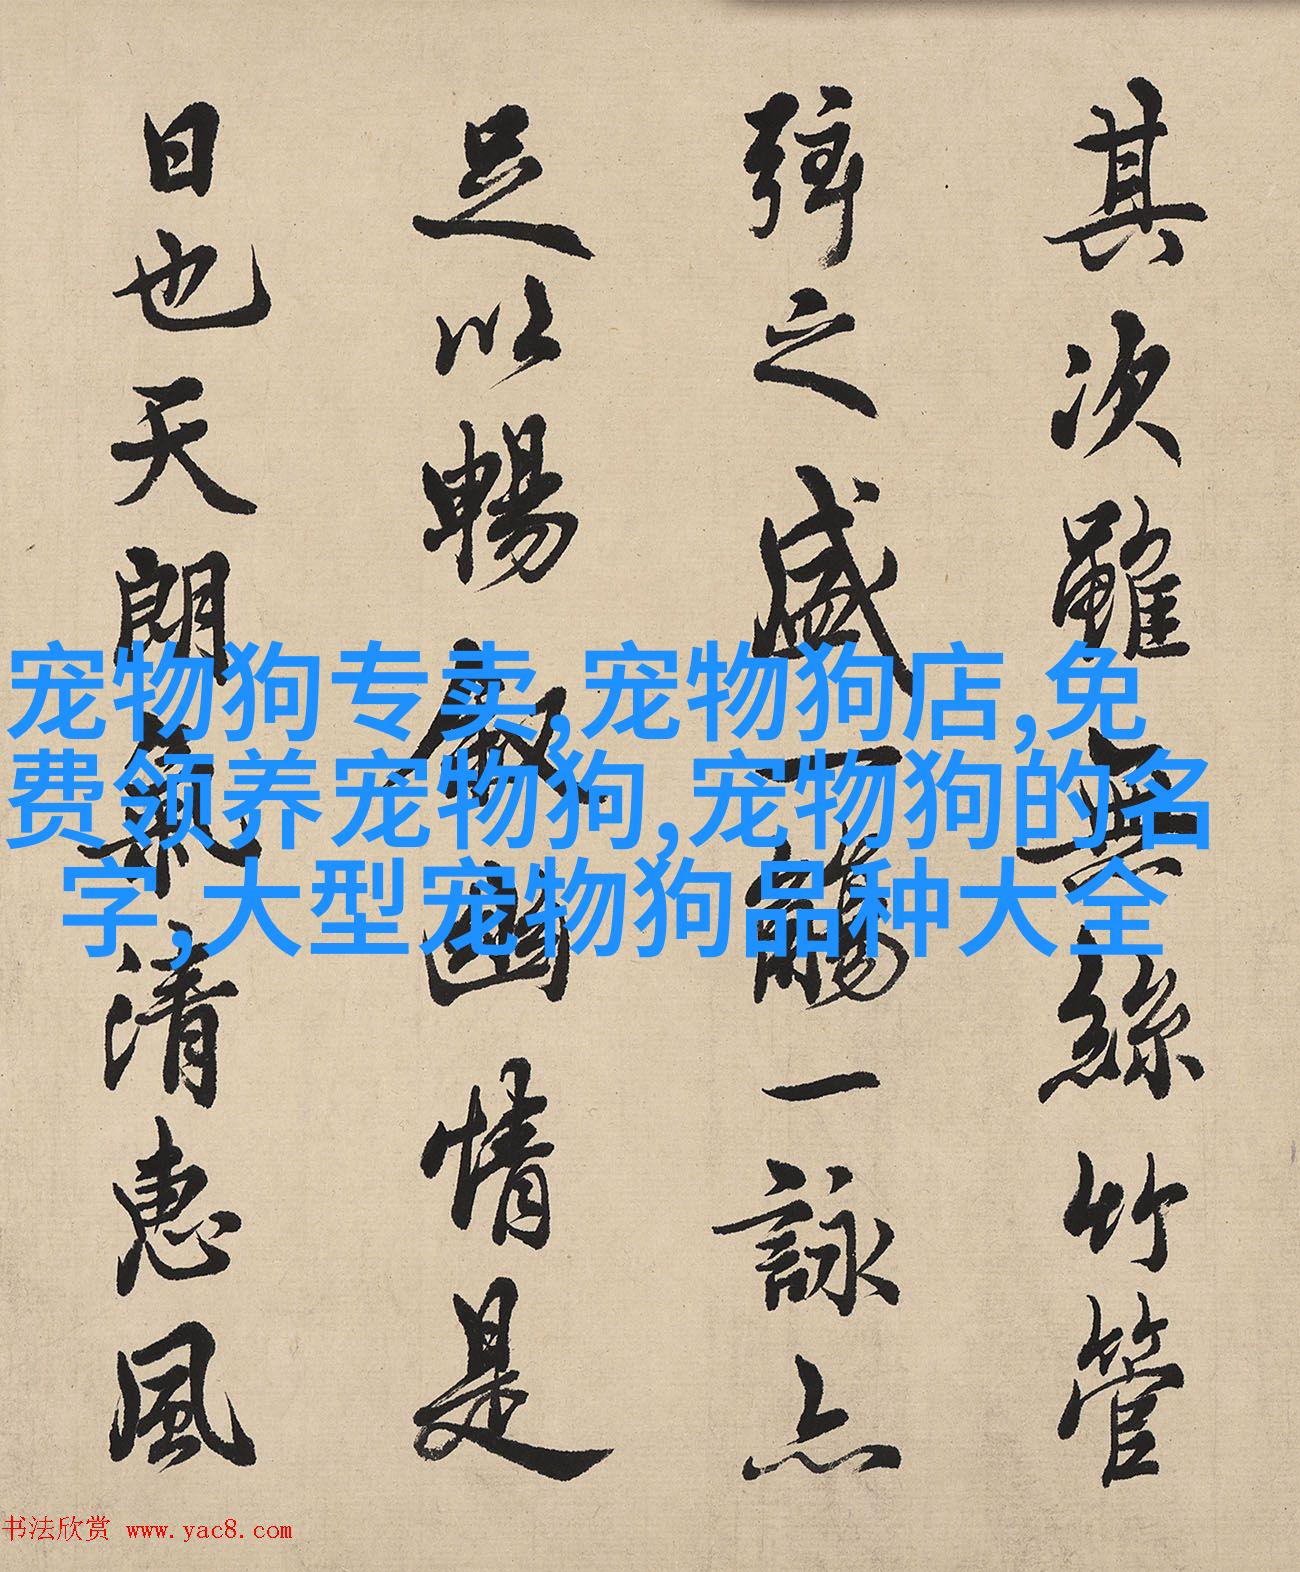 其次雖無絲竹管
弦之盛一觴一詠亦
足以暢敘幽情是
日也天朗氣清惠風
宠物狗专卖,宠物狗店,免
费领养宠物狗,宠物狗的名
字,大型宠物狗品种大全
书法欣赏 www.yac8.com